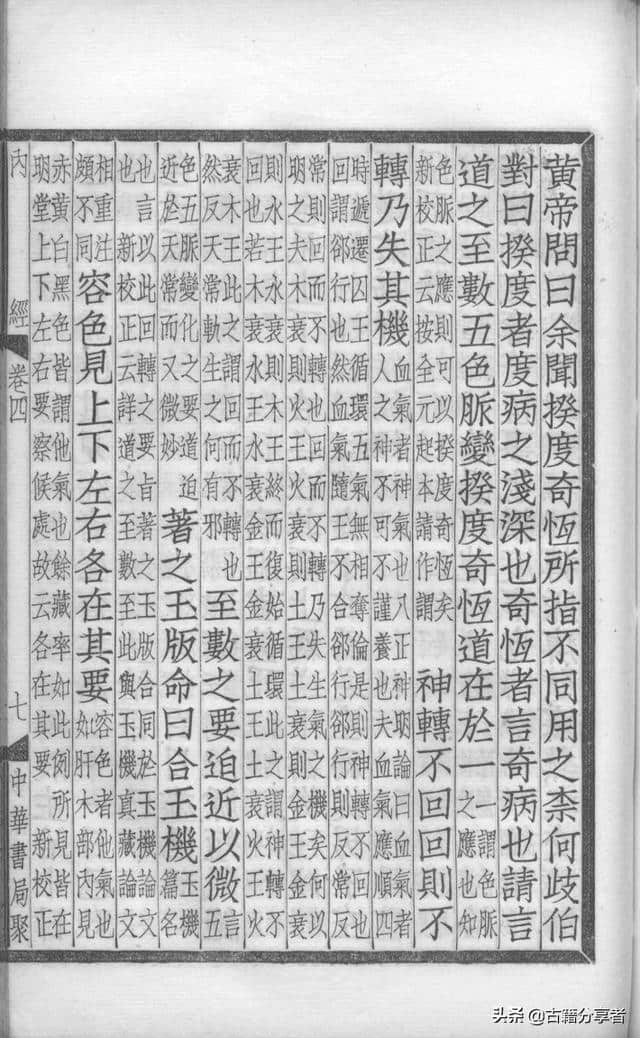 黃帝問曰余聞揆度奇恆所指不同用之柰何歧伯
對曰揆度者度病之淺深也奇恆者言奇病也請言
道之至數五色脈變揆度奇恆道在於一
一謂色脈
之應也知
色脈之應則可以揆度奇恆矣
新校正云按全元起本請作謂
神轉不回回則不
轉乃失其機
血氣者神氣也八正神明論曰血氣者
人之神不可不謹養也夫血氣應順四
時遞遷囚王循環五氣無相奪倫是則神轉不回也
回謂卻行也然血氣隨王不合卻行卻行則反常反
常則回而不轉也回而不轉乃失生氣之機矣何以
明之夫木衰則火王火衰則土王土衰則金王金衰
則水王水衰則木王終而復始循環此之謂神轉不
回也若木衰水王水衰金王金衰土王土衰火王火
衰木王此之謂回而不轉也
然反天常軌生之何有邪
至數之要迫近以微
言五
色五脈變化之要道迫
近於天常而又微妙
著之玉版命曰合玉機
玉機
篇名
也言以此回轉之要旨著之玉版合同於玉機論文
也新校正云詳道之至數至此與玉機真藏論文
相重注
頗不同
容色見上下左右各在其要
容色者他氣也
如肝木部內見
赤黃白黑色皆謂他氣也餘藏率如此例所見皆在
明堂上下左右要察候處故云各在其要 新校正
內經 卷四 七 中華書局聚
头条 @古籍分享者